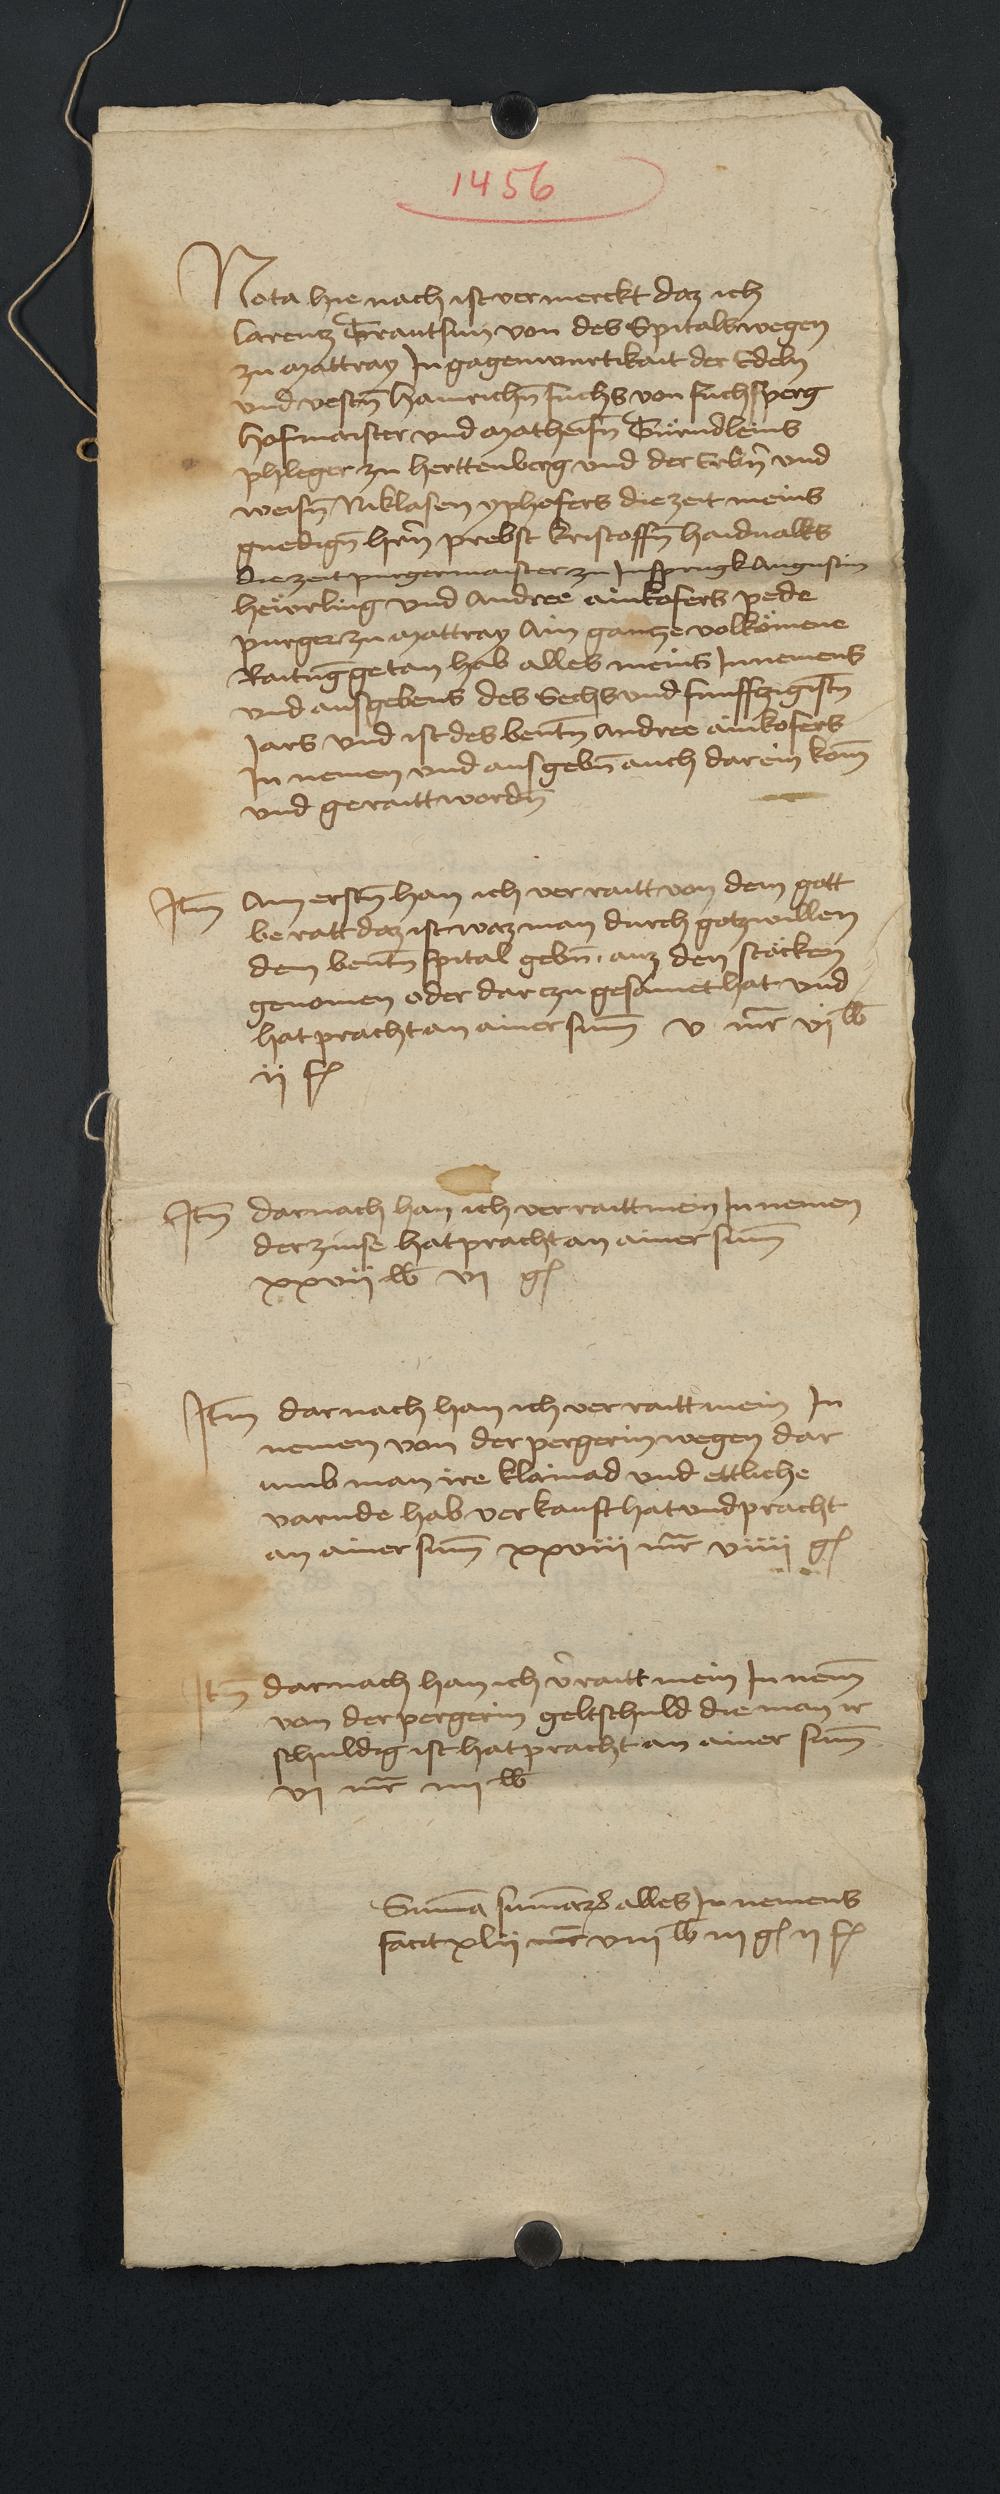 1456
Nota hie nach ist vermerckt daz ich
Larencz Trautsun von des Spitals wegen
zu Mattray In gagenwurtikait der Edeln
und vestn̄ Hainrichn̄ fuchs von fuchsperg
hofmaister und Matheisn̄ Türndleins
phleger zu herttenberg und der Erbn̄ und
weisn̄ Niklasen yphofers die zeit meins
gnedign̄ hrn̄ prebst kristoffn̄ haidnalks
die zeit purgermaister zu Insprugk Augustin
heẅrling und Andree ainkofers pede
purger zu Mattray Ain gantze volkömene
Raitūg getan hab alles meins Innemens
und ausgebens des Sechs und funffczigistn̄
Jars und ist des bentn̄ Andree ainkofers
In nemen und ausgebn̄ auch darein kom̄
und geraitt wordn̄
Itm̄ Am erstn̄ han ich verraitt von dem gott
beratt daz ist waz man durch gotz willen
dem bentn̄ spital gebn̄ auz den stöcken
genomen oder darczu gesamet hat und
hat pracht an ainer sum̄ v mr̄ vj lb
ij f
Itm̄ darnach han ich verraitt mein Innemen
der zinse hat pracht an ainer sum̄
xxvii lb vi g
Itm̄ darnach han ich verraitt mein In
nemen von der pergerin wegen dar
umb man ire klainad und ettliche
varnde hab verkauft hat und pracht
an ainer sum̄ xxviii mr̄ viiii g
Itm̄ darnach han ich v̄raitt mein In nem̄
von der pergerin geltschuld die man ir
schuldig ist hat pracht an ainer sum̄
vi mr̄ iiii lb
Sum̄a sum̄arz alles Innemens
facit xlii mr̄ viii lb iii g ii f